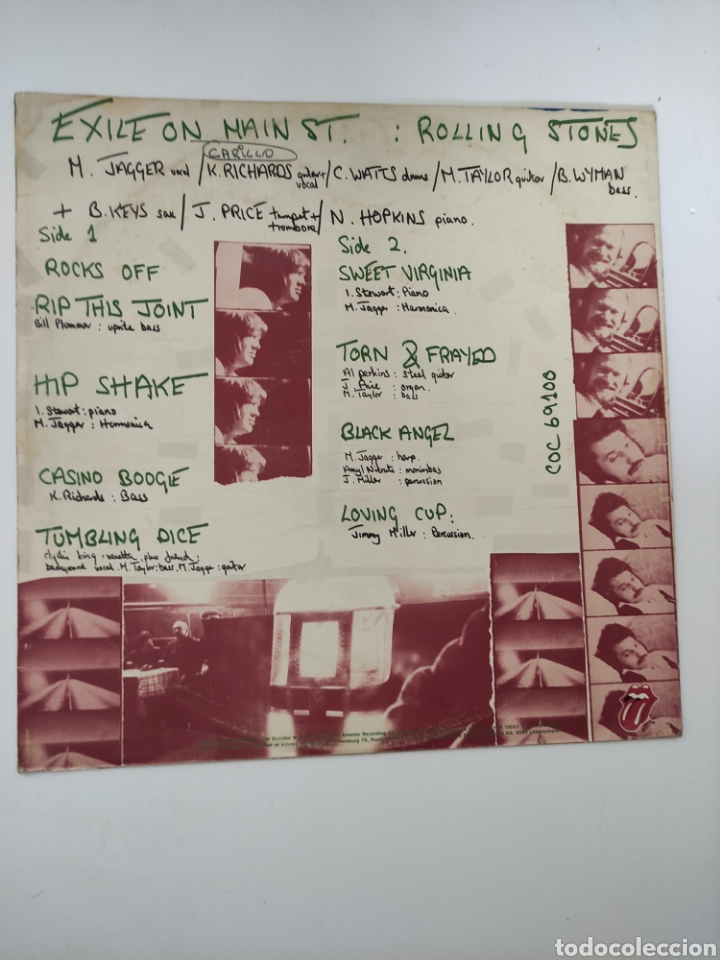 EXILE ON MAIN ST. : ROLLING STONES
CARILLO
M. JAGGER vocal / K. RICHARDS guitar + vocal / C. WATTS drums / M. TAYLOR guitar / B. WYMAN bass.
+ B. KEYS sax / J. PRICE trumpet + trombone / N. HOPKINS piano.
Side 1
ROCKS OFF
RIP THIS JOINT
Bill Plummer : uprite bass
HIP SHAKE
I. Stewart : piano
M. Jagger : Harmonica
CASINO BOOGIE
K. Richards : Bass
TUMBLING DICE
clydie king, vanetta, plus friend :
background vocal. M. Taylor: bass. M. Jagger : guitar
Side 2.
SWEET VIRGINIA
I. Stewart : Piano
M. Jagger : Harmonica.
TORN & FRAYED
Al perkins : steel guitar
J. Price : organ.
M. Taylor : bass
BLACK ANGEL
M. Jagger : harp.
Amyl Nitrate : marimbas
J. Miller : percussion
LOVING CUP :
Jimmy Miller : Percussion.
COC 69100
Atlantic Recording
Hamburg 76,
todocoleccion